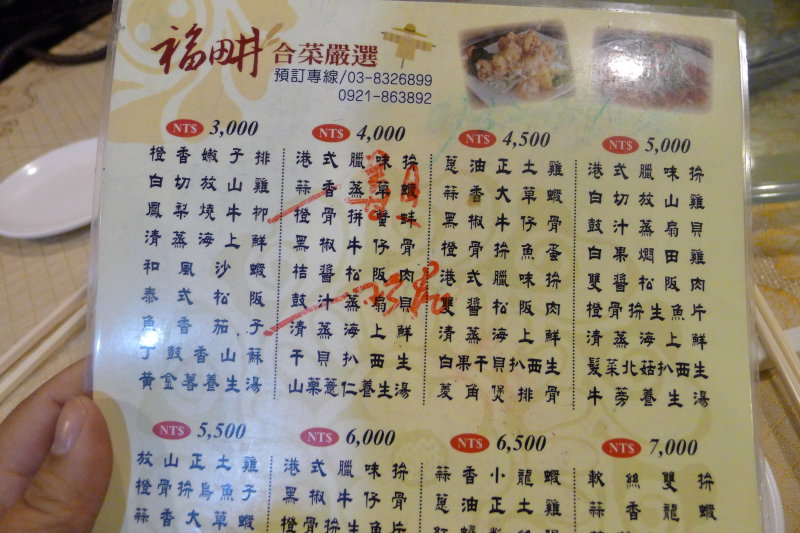 福田井 合菜嚴選
預訂專線/03-8326899
0921-863892
NT$ 3,000
橙香嫩子排
白切放山雞
鳳梨燒牛柳
清蒸海上鮮
和風沙蝦
泰式松阪
魚香茄子
丁鼓香山蘇
黃金薯養生湯
NT$ 4,000
港式臘味拚
蒜香蒸草蝦
橙骨拼蟹味
黑椒牛仔骨
桔醬松阪肉
鼓汁蒸扇貝
清蒸海上鮮
干貝扒西生
山藥薏仁養生湯
NT$ 4,500
蔥油正土雞
蒜香大草蝦
黑椒牛仔骨
橙骨拚魚蛋
港式臘味拚
雙醬松阪肉
清蒸海上鮮
白果干貝扒西生
菱角煲排骨
NT$ 5,000
港式臘味拚
白切放山雞
鼓汁蒸扇貝
白果燜田雞
雙醬松阪肉
橙骨拚生魚片
清蒸海上鮮
髮菜北菇扒西生
牛蒡養生湯
NT$ 5,500
放山正土雞
橙骨拚烏魚子
蒜香大草蝦
NT$ 6,000
港式臘味拚
黑椒牛仔骨
橙骨拚生魚片
NT$ 6,500
蒜香小龍蝦
蔥油正土雞
NT$ 7,000
軟絲雙拚
蒜香龍蝦